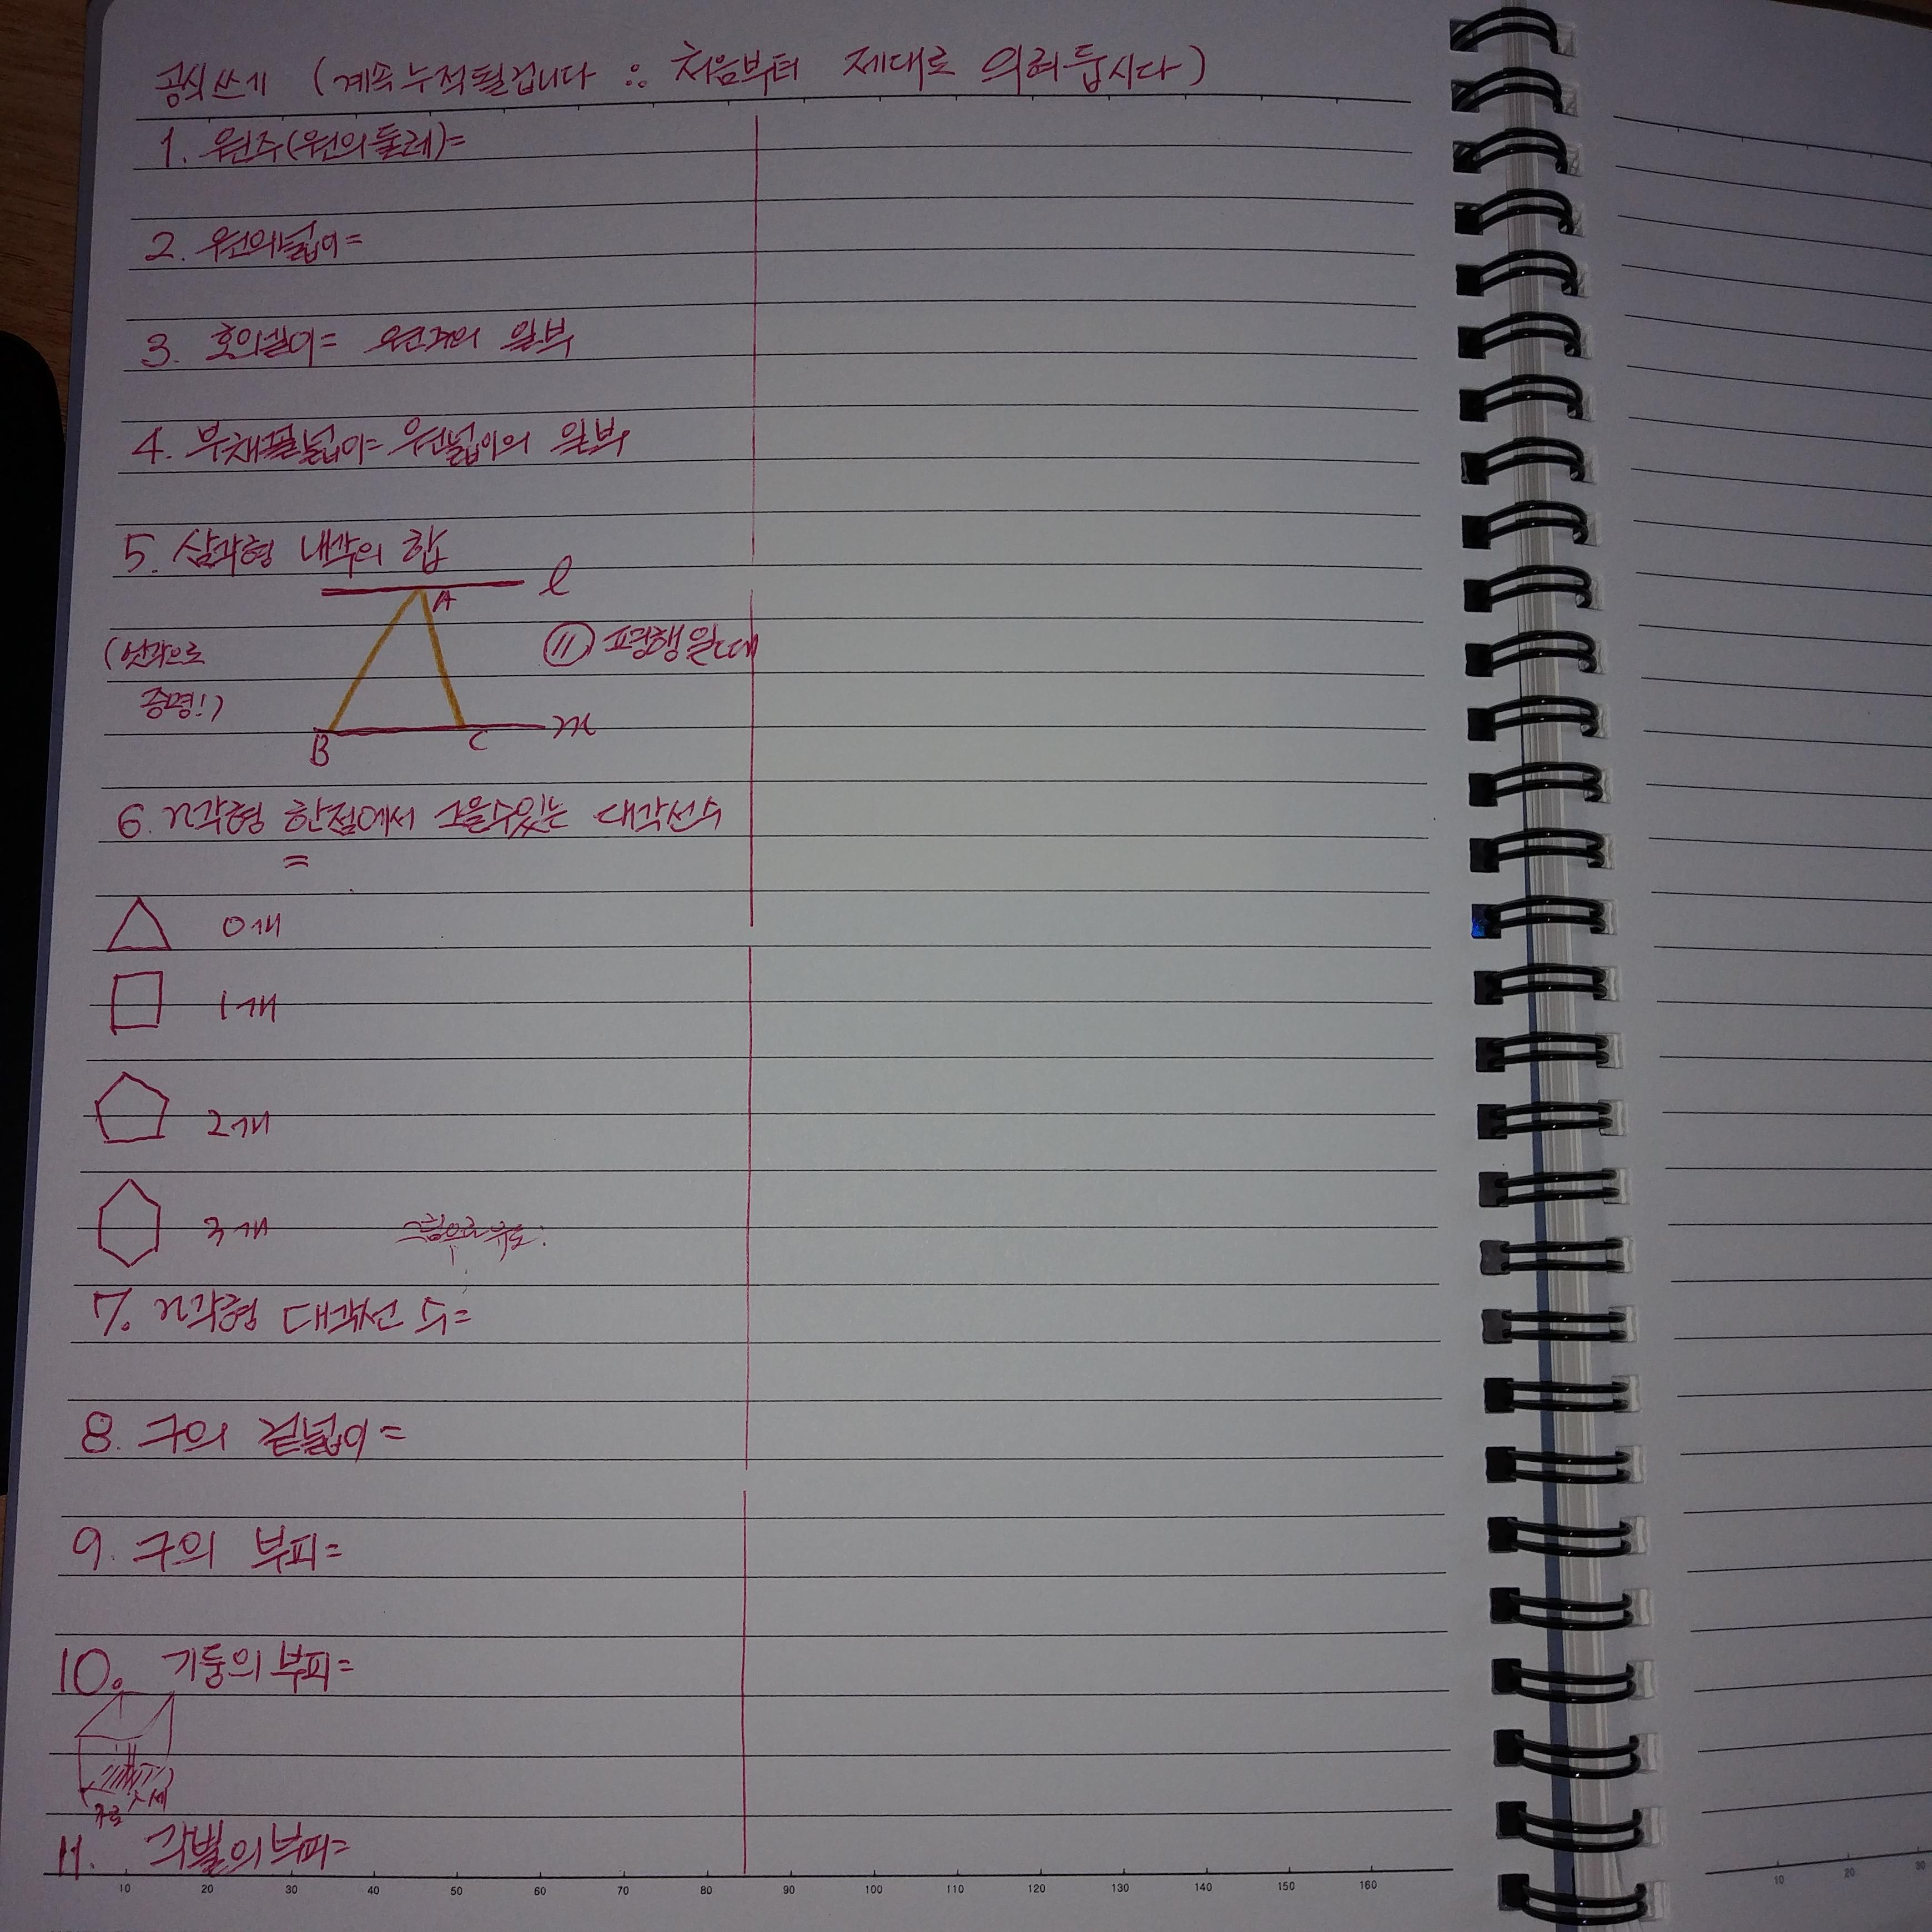 공식쓰기 (계속 누적될겁니다 ∴ 처음부터 제대로 외워둡시다)
1. 원주(원의 둘레)=
2. 원의 넓이=
3. 호의 길이= 원주의 일부
4. 부채꼴넓이= 원넓이의 일부
5. 삼각형 내각의 합
l
A
(엇각으로
// 평행일때
증명!)
m
B C
6. n각형 한점에서 그을수있는 대각선수
=
0개
1개
2개
3개 그림으로 유도.
7. n각형 대각선 수=
8. 구의 겉넓이=
9. 구의 부피=
10. 기둥의 부피=
가로 세
11. 각뿔의 부피=
10 20 30 40 50 60 70 80 90 100 110 120 130 140 150 160
10 20 30